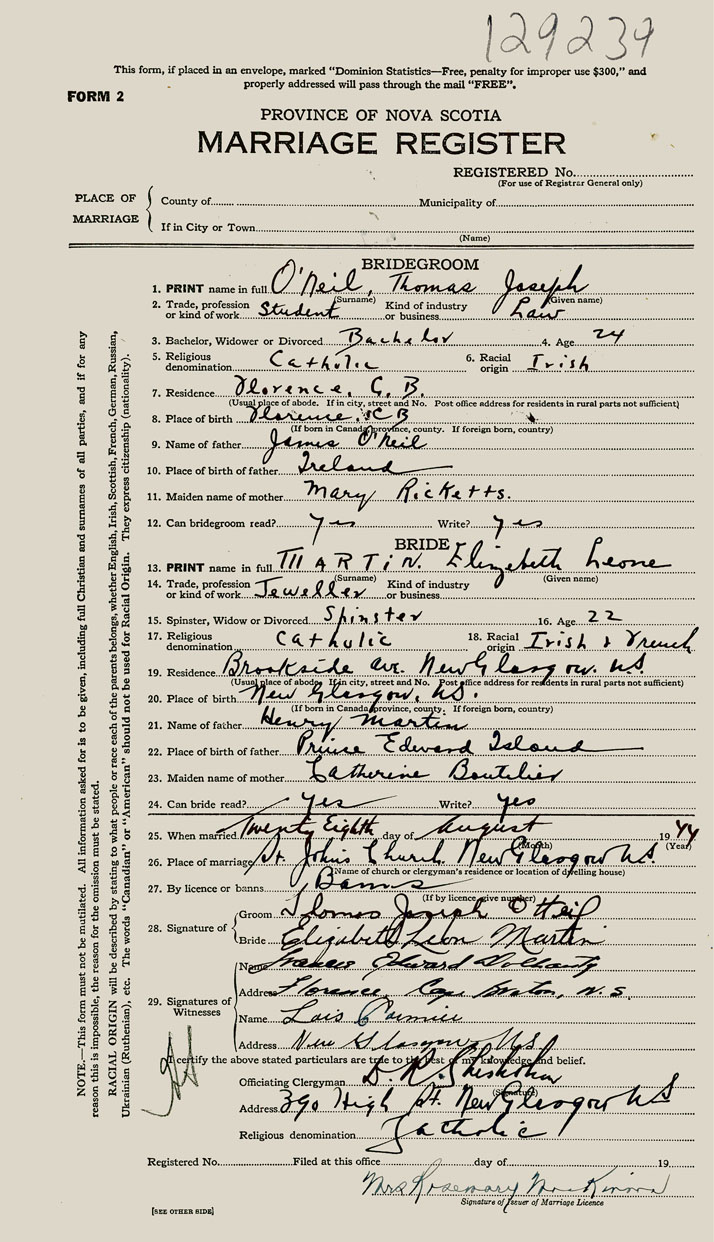 129239
This form, if placed in an envelope, marked “Dominion Statistics—Free, penalty for improper use $300,” and
properly addressed will pass through the mail “FREE”.
FORM 2
PROVINCE OF NOVA SCOTIA
MARRIAGE REGISTER
REGISTERED No.
(For use of Registrar General only)
PLACE OF MARRIAGE
County of Municipality of
If in City or Town
(Name)
BRIDEGROOM
1. PRINT name in full O'Neil, Thomas Joseph
(Surname) (Given name)
2. Trade, profession or kind of work Student Kind of industry or business Law
3. Bachelor, Widower or Divorced Bachelor 4. Age 24
5. Religious denomination Catholic 6. Racial origin Irish
7. Residence Florence, C. B.
(Usual place of abode. If in city, street and No. Post office address for residents in rural parts not sufficient)
8. Place of birth Florence, C B
(If born in Canada, province, county. If foreign born, country)
9. Name of father James O'Neil
10. Place of birth of father Ireland
11. Maiden name of mother Mary Ricketts.
12. Can bridegroom read? Yes Write? Yes
BRIDE
13. PRINT name in full MARTIN Elizabeth Leone
(Surname) (Given name)
14. Trade, profession or kind of work Jeweller Kind of industry or business
15. Spinster, Widow or Divorced Spinster 16. Age 22
17. Religious denomination Catholic 18. Racial origin Irish & French
19. Residence Brookside Ave. New Glasgow. N.S.
(Usual place of abode. If in city, street and No. Post office address for residents in rural parts not sufficient)
20. Place of birth New Glasgow, N.S.
(If born in Canada, province, county. If foreign born, country)
21. Name of father Henry Martin
22. Place of birth of father Prince Edward Island
23. Maiden name of mother Catherine Boutilier
24. Can bride read? Yes Write? Yes
25. When married Twenty Eighth day of August 1944
(Month) (Year)
26. Place of marriage St. Johns Church. New Glasgow N.S.
(Name of church or clergyman's residence or location of dwelling house)
27. By licence or banns Banns
(If by licence give number)
28. Signature of
Groom Thomas Joseph O'Neil
Bride Elizabeth Leon Martin
29. Signatures of Witnesses
Name Francis Edward
Address Florence, Cape Breton, N.S.
Name Lois
Address New Glasgow, N.S.
I certify the above stated particulars are true to the best of my knowledge and belief.
Officiating Clergyman D. R.
(Signature)
Address 390 High St. New Glasgow N S
Religious denomination Catholic
Registered No. Filed at this office day of 19
Mrs Rosemary MacKinnon
Signature of Issuer of Marriage Licence
[SEE OTHER SIDE]
NOTE.—This form must not be mutilated. All information asked for is to be given, including full Christian and surnames of all parties, and if for any
reason this is impossible, the reason for the omission must be stated.
RACIAL ORIGIN will be described by stating to what people or race each of the parents belongs, whether English, Irish, Scottish, French, German, Russian,
Ukrainian (Ruthenian), etc. The words “Canadian” or “American” should not be used for Racial Origin. They express citizenship (nationality).